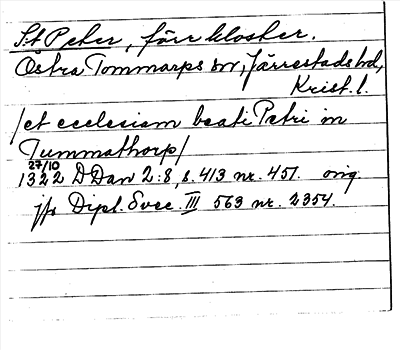 S:t Peter, förr kloster.
Östra Tommarps sn, Järrestads hd,
Krist. l.
/et ecclesiam beati Petri in
Tummathorp/
27/10
1322 DDan 2:8, s. 413 nr. 451. orig
jfr Dipl. Svec. III 563 nr. 2354.